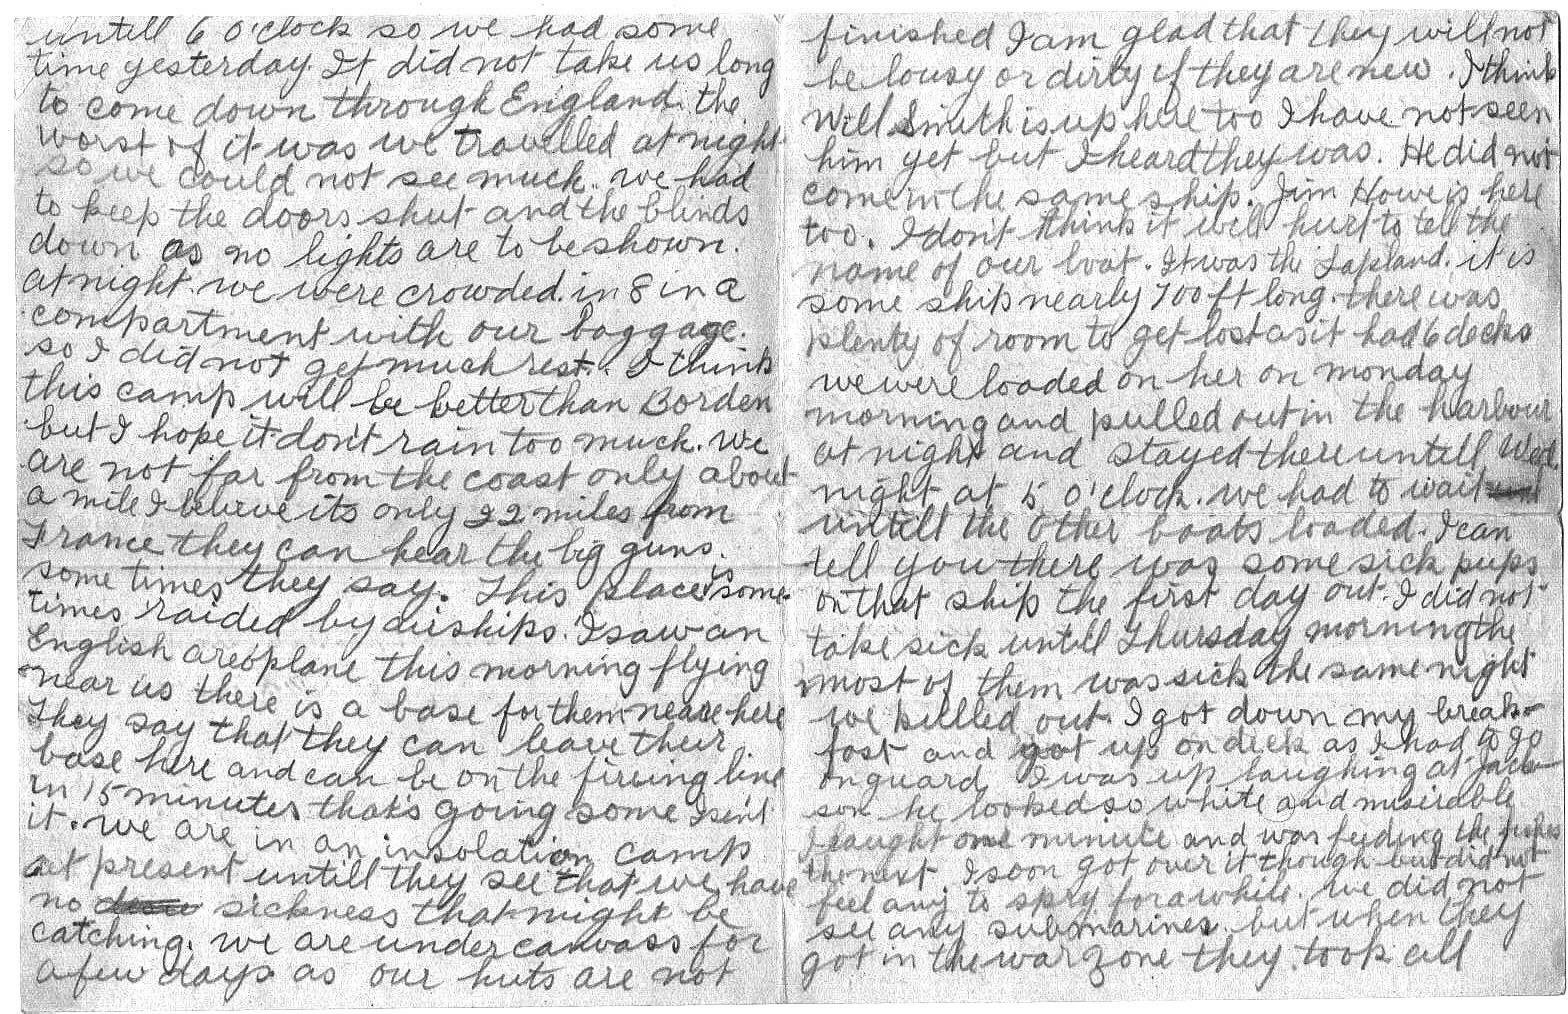 untill 6 O'clock so we had some
time yesterday. It did not take us long
to come down through England. the
worst of it was we travelled at night
so we could not see much. we had
to keep the doors shut and the blinds
down as no lights are to be shown.
at night. we were crowded. in 8 in a
compartment with our baggage.
so I did not get much rest. I think
this camp will be better than Borden
but I hope it don't rain too much. We
are not far from the coast only about
a mile I believe its only 22 miles from
France they can hear the big guns.
some times they say. This place is some
times raided by airships. I saw an
English areoplane this morning flying
near us there is a base for them neare here
They say that they can leave their
base here and can be on the fireing line
in 15 minutes that's going some Isen't
it. We are in an insolation camp
at present untill they see that we have
no sickness that might be
catching. we are under canvass for
a few days as our huts are not
finished I am glad that they will not
be lousy or dirty if they are new. I think
Will Smith is up here too I have not seen
him yet but I heard they was. He did not
come in the same ship. Jim Howe is here
too. I don't think it will hurt to tell the
name of our boat. It was the Lapland. it is
some ship nearly 700 ft long. there was
plenty of room to get lost as it had 6 decks
we were loaded on her on monday
morning and pulled out in the harbour
at night and stayed there untill Wed
night at 5 O'clock. we had to wait
untill the other boats loaded. I can
tell you there was some sick pups
on that ship the first day out. I did not
take sick untill Thursday morning the
most of them was sick the same night
we pulled out. I got down my break-
fast and got up on deck as I had to go
on guard I was up laughing at Jack-
son he looked so white and miserable
I laught one minute and was feeding the fishes
the next I soon got over it though but did not
feel any to spry for a while. we did not
see any submarines. but when they
got in the war zone they took all